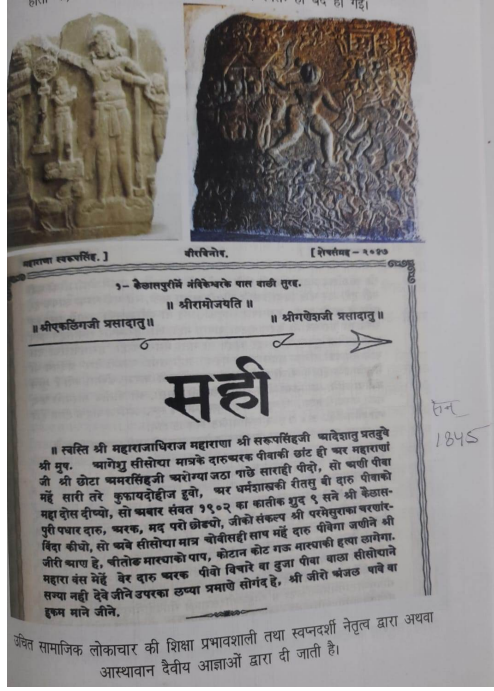 महाराणा स्वरूपसिंह. ] वीरविनोद. [ शेषसंग्रह - २०४७
१- कैलासपुरीमें नंदिकेश्वरके पास वाली सुरह.
॥ श्रीरामोजयति ॥
॥ श्रीएकलिंगजी प्रसादातु ॥ ॥ श्रीगणेशजी प्रसादातु ॥
सही
॥ स्वस्ति श्री महाराजाधिराज महाराणा श्री सरूपसिंहजी आदेशातु प्रतदुवे
श्री मुष. आगेशु सीसोद्या मात्रके दारुअरक पीवाकी छांट ही अर महाराणां
जी श्री छोटा अमरसिंहजी अरोग्या जठा पाछे साराही पीदो, सो अणी पीवा
में सारी तरे कुफायदोहीज हुवो, अर धर्मशास्त्रकी रीतसु बी दारु पीवाको
महा दोस दीष्यो, सो अबार संवत १९०२ का कातीक शुद ९ सने श्री कैलास-
पुरी पधार दारु, अरक, मद परो छोड्यो, जीको संकल्प श्री परमेसुराका चरणांर-
बिंदा कीधो, सो अबे सीसोद्या मात्र चोवीसही साष म्हें दारु पीवेगा जणीने श्री
जीरी आण है, चीतोड माख्याको पाप, कोटान कोट गऊ माख्याकी हत्या लागेगा.
म्हारा वंस मेहें वेर दारु अरक पीवो विचारे वा दुजा पीवा वाला सीसोद्याने
सज्या नही देवे जीने उपरका लष्या प्रमाणे सोगंद है, श्री जीरो अंजल पावे वा
हुकम माने जीने.
उचित सामाजिक लोकाचार की शिक्षा प्रभावशाली तथा स्वप्नदर्शी नेतृत्व द्वारा अथवा
आस्थावान दैवीय आज्ञाओं द्वारा दी जाती है।
सन्
1845